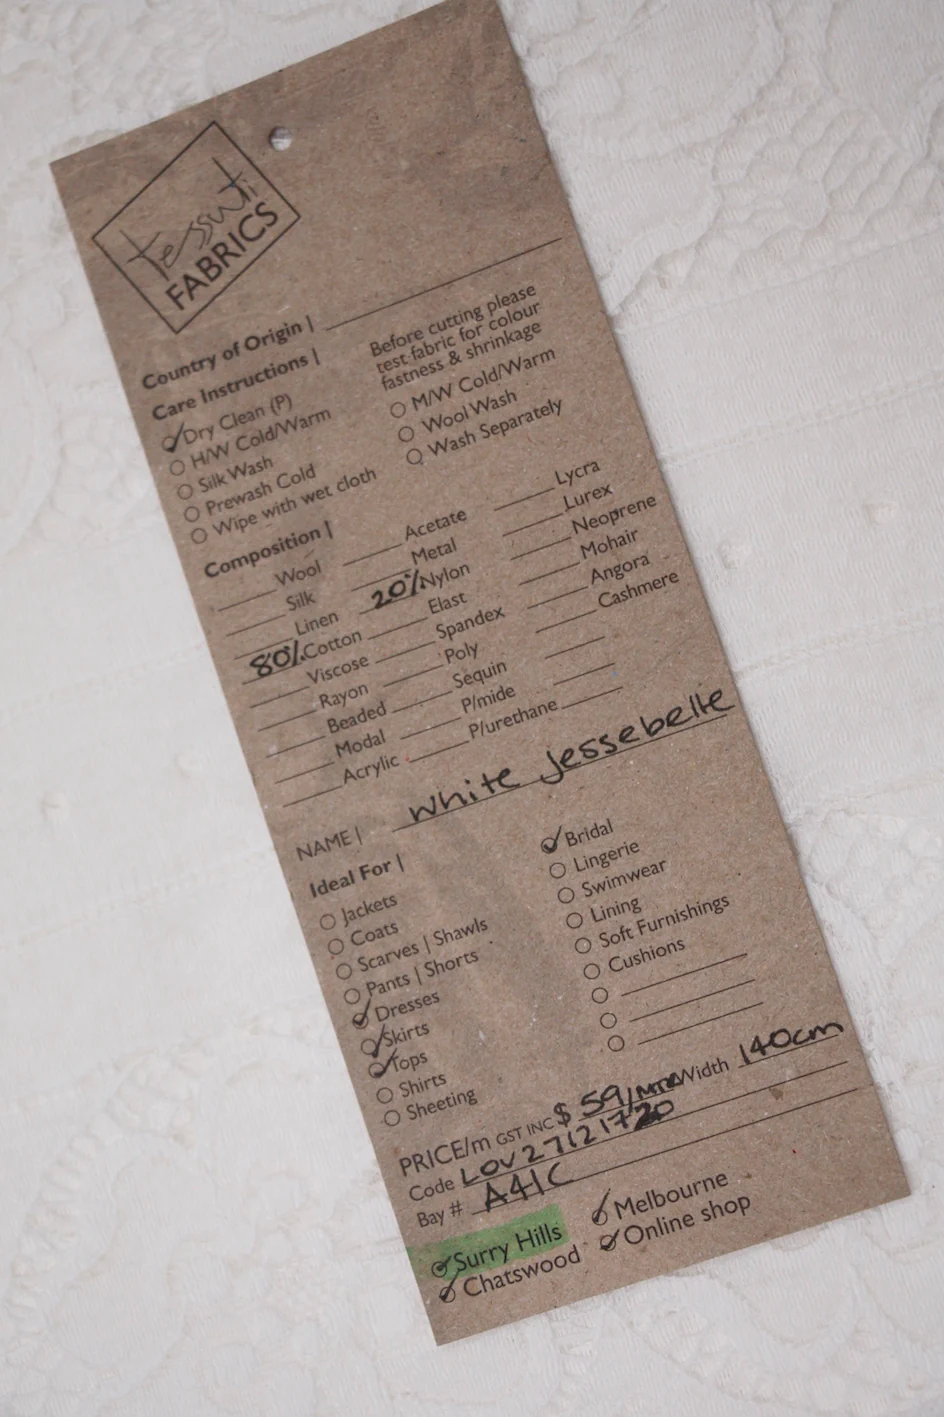 tessuti
FABRICS
Country of Origin |
Care Instructions |
Before cutting please
test fabric for colour
fastness & shrinkage
Dry Clean (P)
H/W Cold/Warm
Silk Wash
Prewash Cold
Wipe with wet cloth
M/W Cold/Warm
Wool Wash
Wash Separately
Composition |
Wool
Silk
Linen
80% Cotton
Viscose
Rayon
Beaded
Modal
Acrylic
Acetate
Metal
20% Nylon
Elast
Spandex
Poly
Sequin
P/mide
P/urethane
Lycra
Lurex
Neoprene
Mohair
Angora
Cashmere
NAME | white jessebelle
Ideal For |
Jackets
Coats
Scarves | Shawls
Pants | Shorts
Dresses
Skirts
Tops
Shirts
Sheeting
Bridal
Lingerie
Swimwear
Lining
Soft Furnishings
Cushions
PRICE/m GST INC $ 59/MTR Width 140cm
Code LOV27121720
Bay # A41C
Surry Hills
Chatswood
Melbourne
Online shop